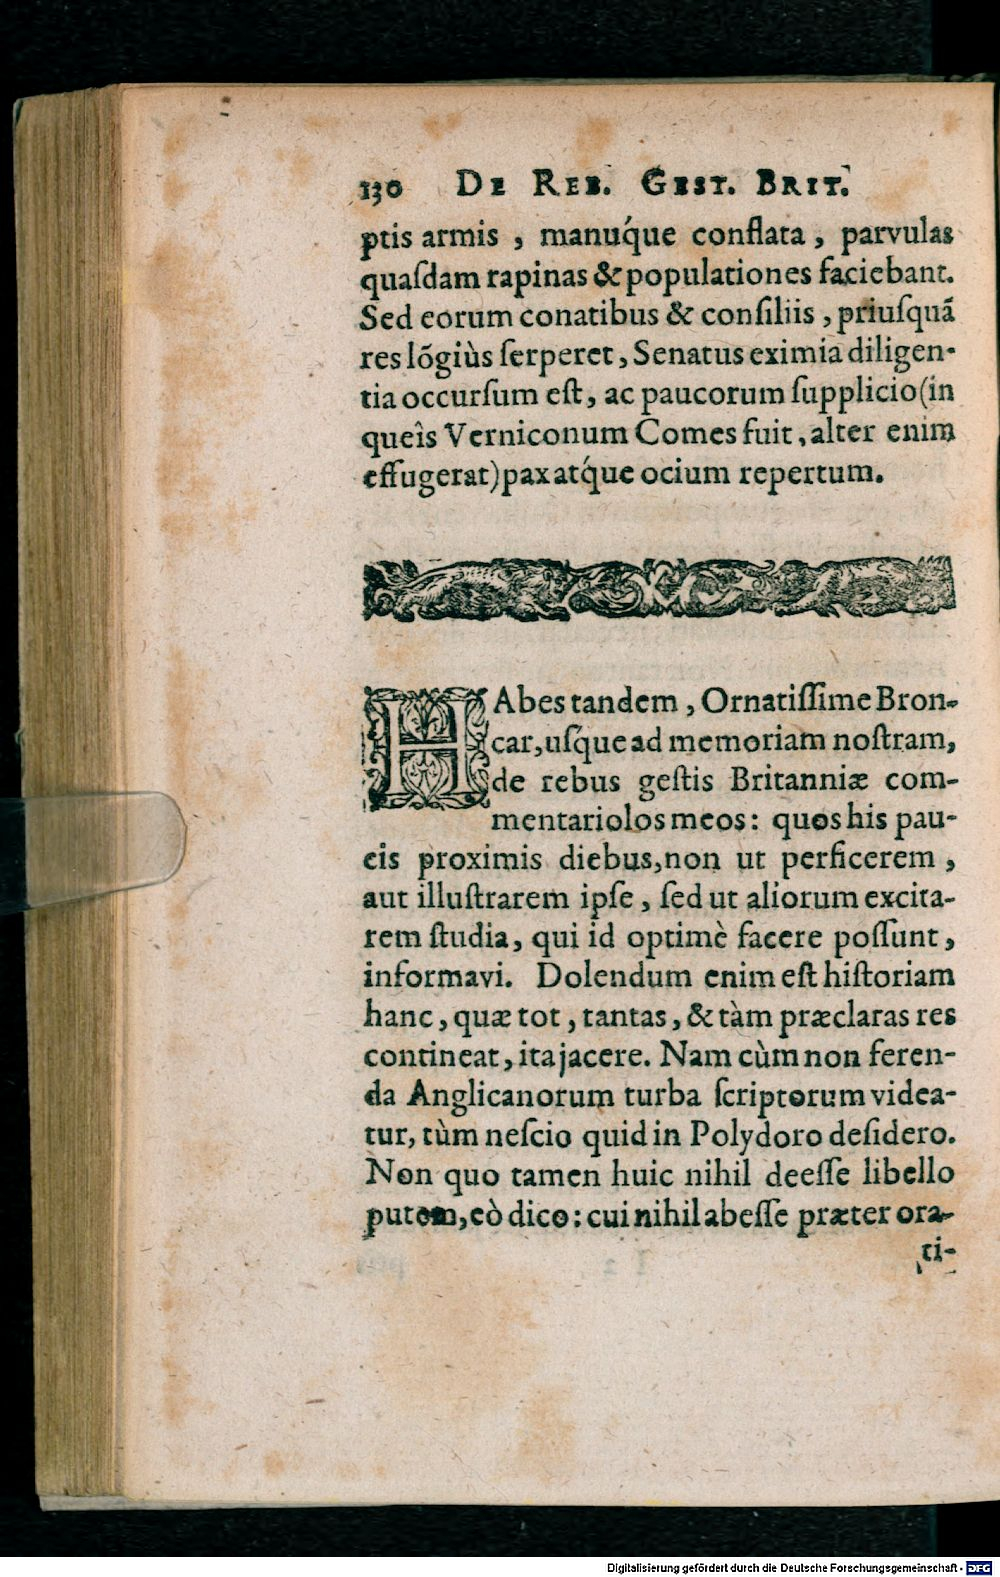 130 DE REB. GEST. BRIT.
ptis armis , manuq́ue conflata , parvulas
quaſdam rapinas & populationes faciebant.
Sed eorum conatibus & conſiliis , priuſquã
res lõgiùs ſerperet, Senatus eximia diligen-
tia occurſum eſt, ac paucorum ſupplicio (in
queîs Verniconum Comes fuit, alter enim
effugerat) pax atq́ue ocium repertum.
HAbes tandem , Ornatiſſime Bron-
car, uſque ad memoriam noſtram,
de rebus geſtis Britanniæ com-
mentariolos meos : quos his pau-
cis proximis diebus, non ut perficerem ,
aut illuſtrarem ipſe , ſed ut aliorum excita-
rem ſtudia, qui id optimè facere poſſunt,
informavi. Dolendum enim eſt hiſtoriam
hanc, quæ tot, tantas, & tàm præclaras res
contineat, ita jacere. Nam cùm non feren-
da Anglicanorum turba ſcriptorum videa-
tur, tùm neſcio quid in Polydoro deſidero.
Non quo tamen huic nihil deeſſe libello
putem, eò dico : cui nihil abeſſe præter ora-
ti-
Digitalisierung gefördert durch die Deutsche Forschungsgemeinschaft - DFG